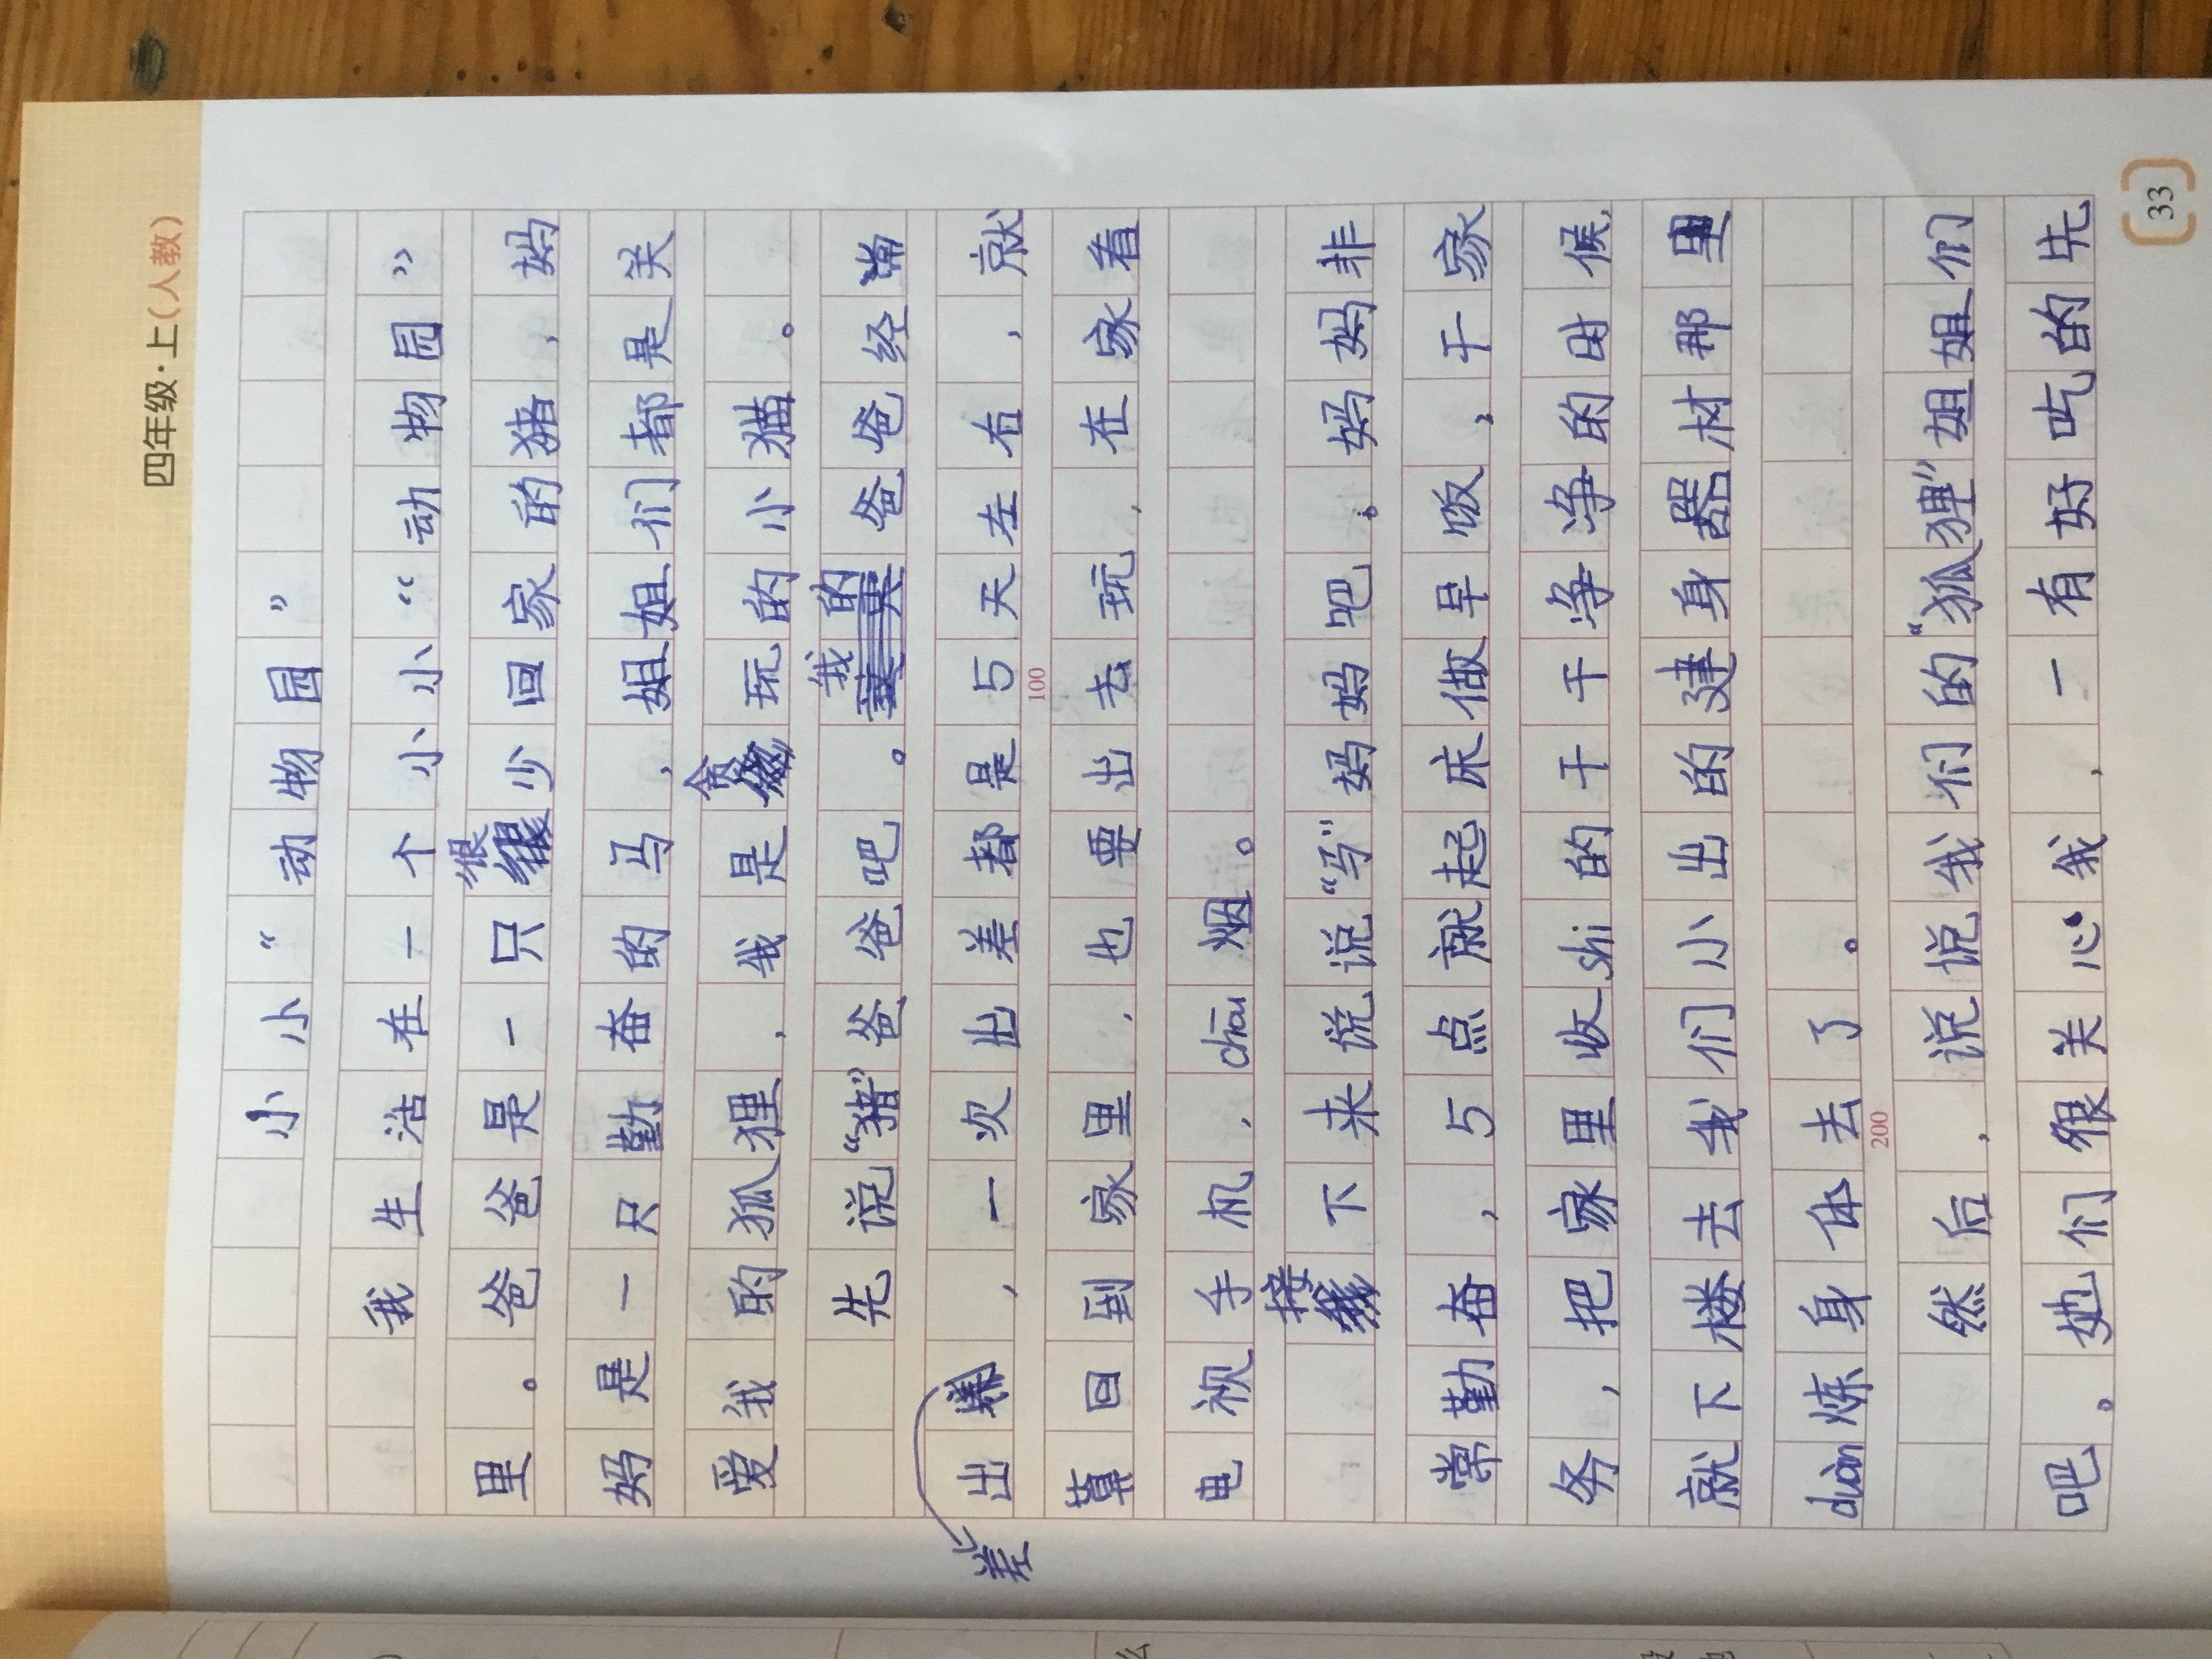 四年级·上(人教)
小小“动物园”
我生活在一个小小“动物园”
里。爸爸是一只很少回家的猪,妈
妈是一只勤奋的马,姐姐们都是关
爱我的狐狸,我是贪玩的小猫。
先说“猪”爸爸吧。我的爸爸经常
出差,一次出差都是5天左右,就
算回到家里,也要出去玩,在家看
电视手机,chōu烟。
接下来说说“马”妈妈吧。妈妈非
常勤奋,5点就起床做早饭,干家
务,把家里收shi的干干净净的时候,
就下楼去我们小出的建身器材那里
duàn炼身体去了。
然后,说说我们的“狐狸”姐姐们
吧。她们很关心我,一有好吃的先
100
200
33